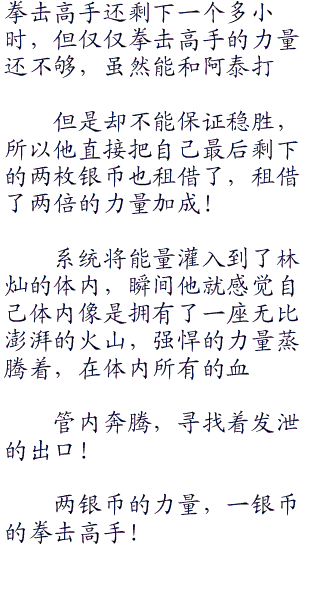 拳击高手还剩下一个多小
时，但仅仅拳击高手的力量
还不够，虽然能和阿泰打
但是却不能保证稳胜，
所以他直接把自己最后剩下
的两枚银币也租借了，租借
了两倍的力量加成！
系统将能量灌入到了林
灿的体内，瞬间他就感觉自
己体内像是拥有了一座无比
澎湃的火山，强悍的力量蒸
腾着，在体内所有的血
管内奔腾，寻找着发泄
的出口！
两银币的力量，一银币
的拳击高手！